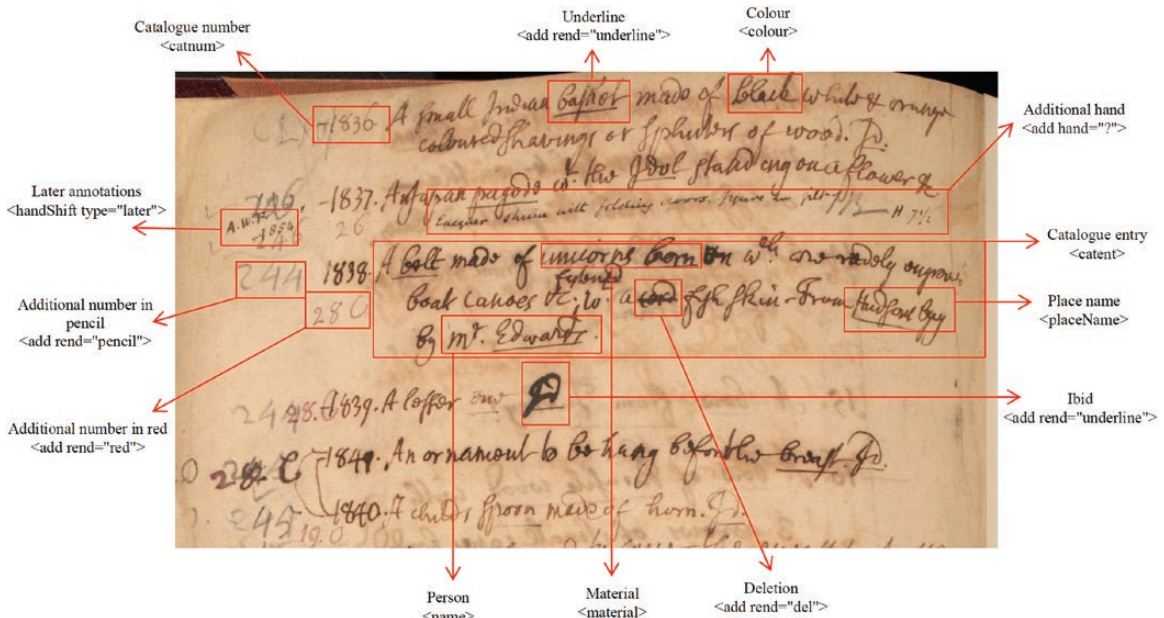 Underline
<add rend="underline">
Colour
<colour>
Catalogue number
<catnum>
Additional hand
<add hand="?">
Later annotations
<handShift type="later">
Catalogue entry
<catent>
Additional number in
pencil
<add rend="pencil">
Place name
<placeName>
Additional number in red
<add rend="red">
Ibid
<add rend="underline">
Person
<name>
Material
<material>
Deletion
<add rend="del">
1836. A small Indian basket made of black white & orange
coloured shavings or splinters of wood. Jd.
1837. A Japan pagode wt. the Idol standing on a flower &
Lacquer shrine with folding doors. figure in gilt H 7½
A.W.F.
1854
26
244 1838. A belt made of unicorns horn on wch. are rudely engraven
280 boat canoes &c. w. a fish skin - From Hudsons bay
by Mr. Edwards.
1839. A lesser one Jd
1841. An ornament to be hung before the breast. Jd.
245 1840. A childs spoon made of horn. Jd.
19.0